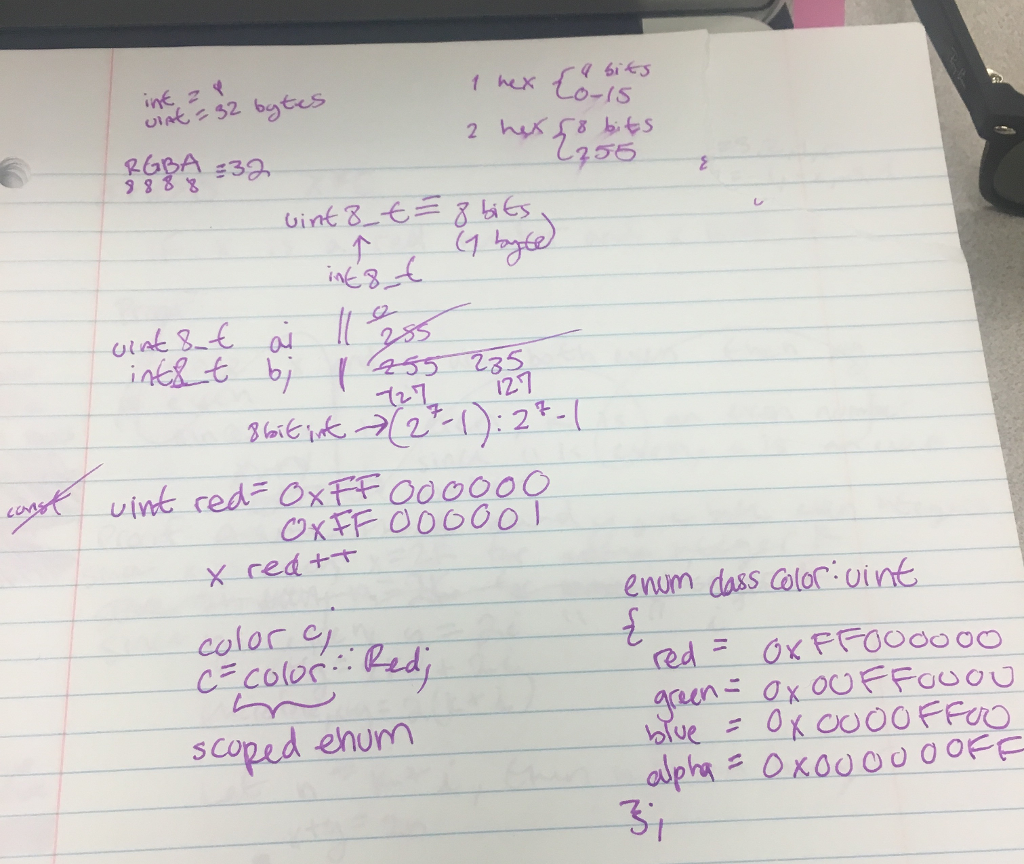 int = 4
uint = 32 bytes
1 hex { 4 bits
0-15
2 hex { 8 bits
255
RGBA = 32
8 8 8 8
uint8_t = 8 bits
(1 byte)
↑
int8_t
uint8_t a; || 0
255
int8_t b; | 255 235
-127 127
8bit int → (2^7-1) : 2^7-1
const uint red = 0xFF000000
0xFF000001
x red++
color c;
c = color::Red;
scoped enum
enum class color : uint
{
red = 0xFF000000
green = 0x00FF0000
blue = 0x0000FF00
alpha = 0x000000FF
};